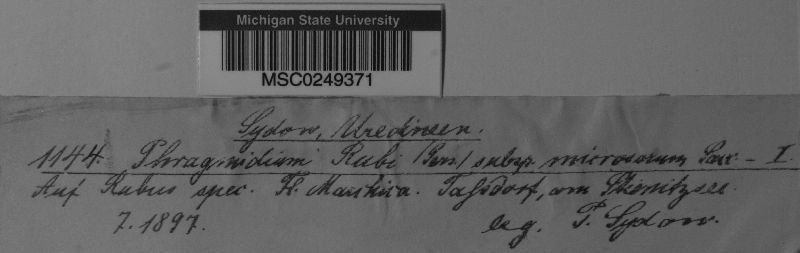 Michigan State University
MSC0249371
Sydow, Uredineen.
1144. Phragmidium Rubi (Pers.) subsp. microsorum Sacc. – I.
Auf Rubus spec. Fl. Marchica. Tassdorf, am
7. 1897. leg. P. Sydow.